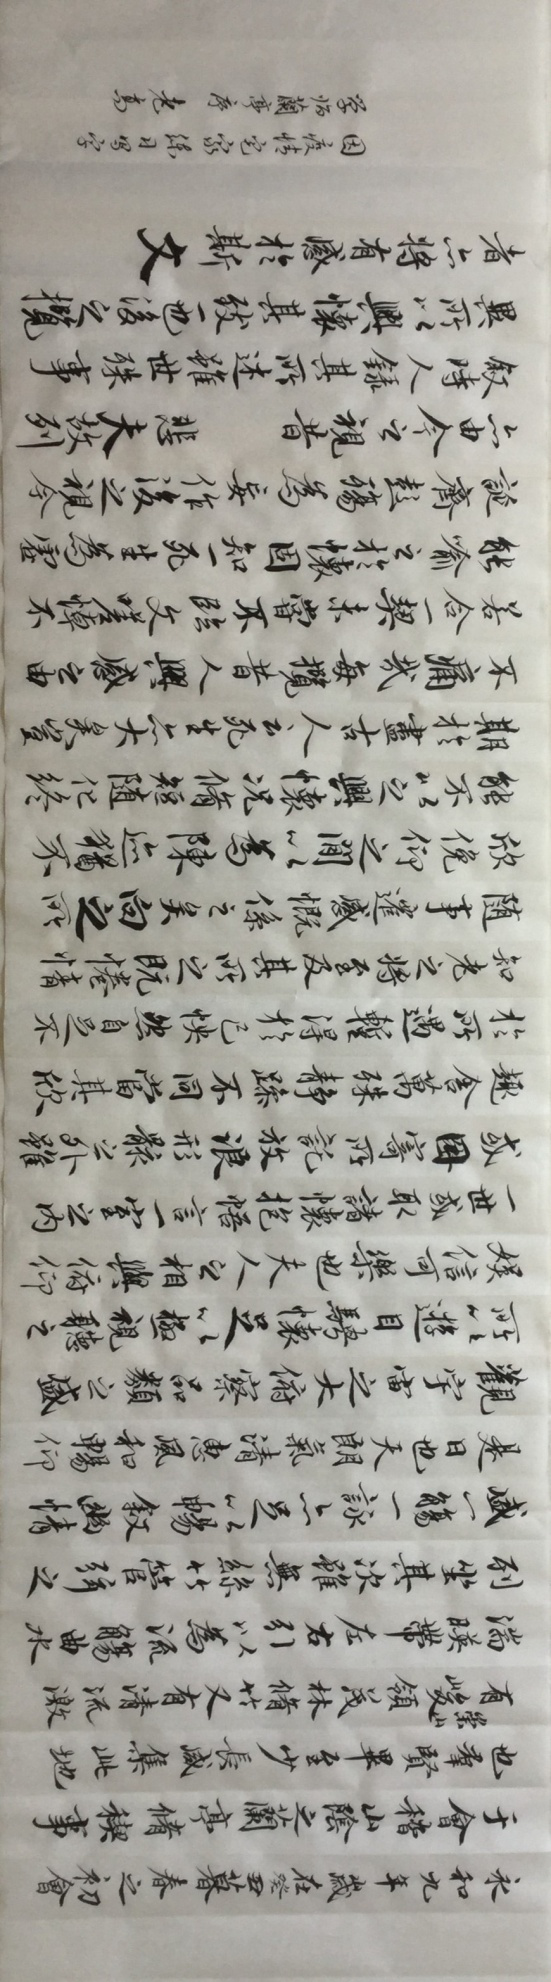 永和九年歲在癸丑暮春之初會
于會稽山陰之蘭亭脩稧事
也羣賢畢至少長咸集此地
有崇山峻領茂林脩竹又有清流激
湍暎帶左右引以為流觴曲水
列坐其次雖無絲竹管弦之
盛一觴一詠亦足以暢叙幽情
是日也天朗氣清惠風和暢仰
觀宇宙之大俯察品類之盛
所以遊目騁懷足以極視聽之
娛信可樂也夫人之相與俯仰
一世或取諸懷抱悟言一室之內
或因寄所託放浪形骸之外雖
趣舍萬殊靜躁不同當其欣
於所遇暫得於己怏然自足不
知老之將至及其所之既惓情
隨事遷感慨係之矣向之所
欣俛仰之間以為陳迹猶不
能不以之興懷況脩短隨化終
期於盡古人云死生亦大矣豈
不痛哉每攬昔人興感之由
若合一契未嘗不臨文嗟悼不
能喻之於懷固知一死生為虛
誕齊彭殤為妄作後之視今
亦由今之視昔悲夫故列
叙時人錄其所述雖世殊事
異所以興懷其致一也後之攬
者亦將有感於斯文
因疫情宅家練日寫字
學臨蘭亭序